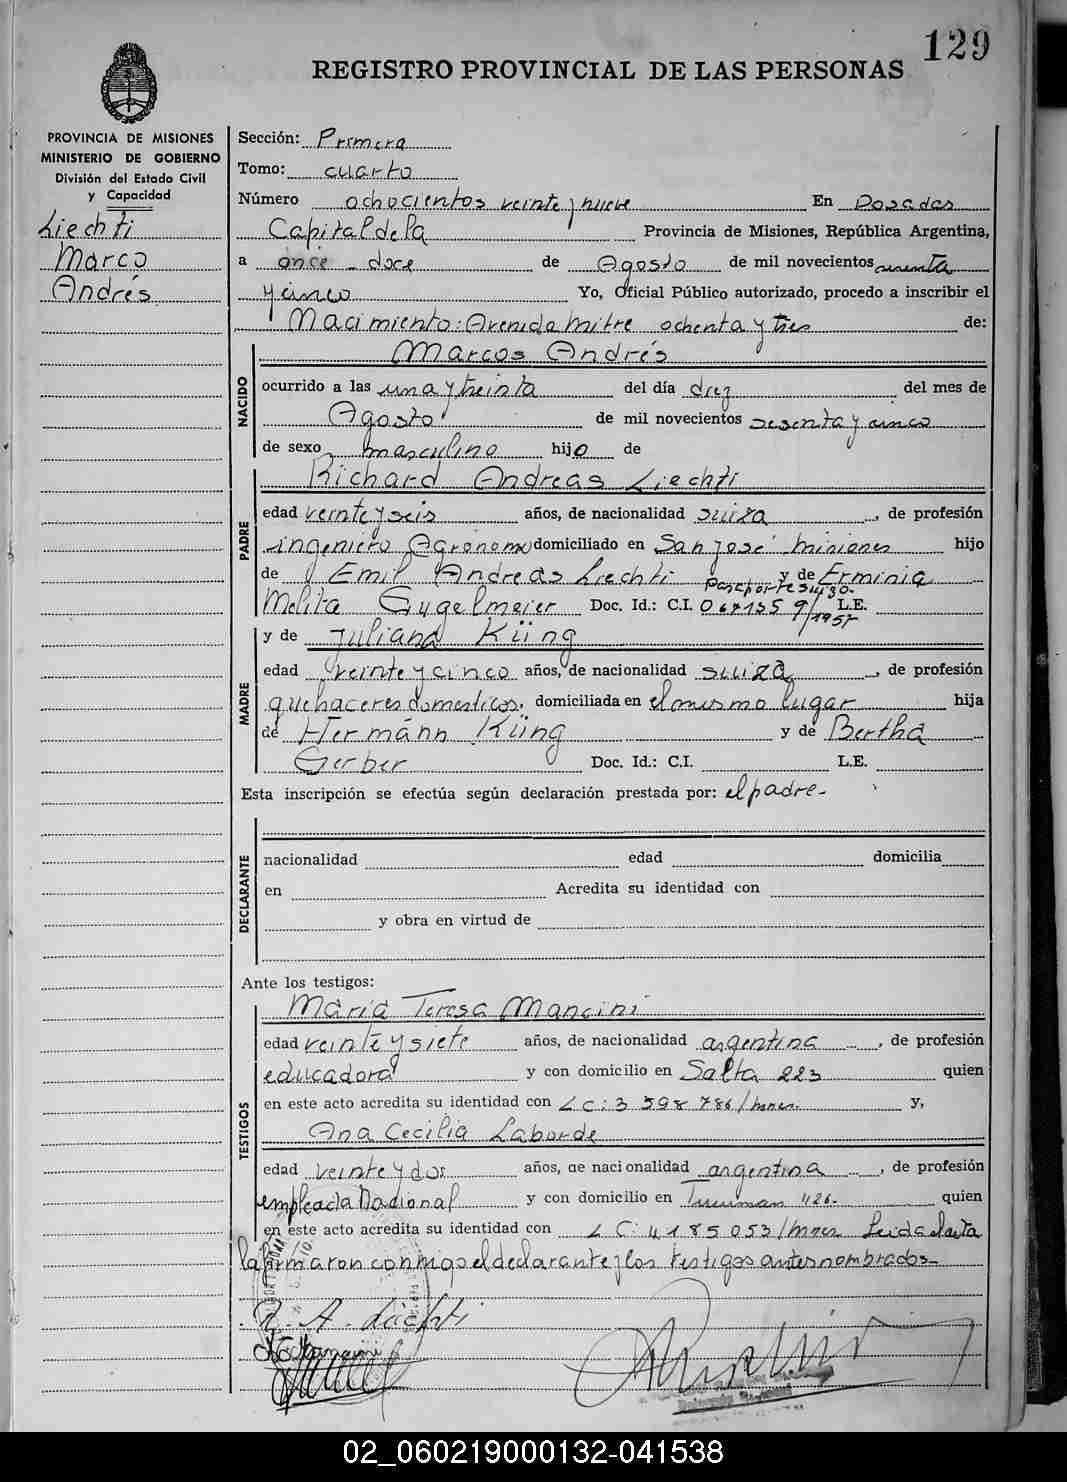 129
REGISTRO PROVINCIAL DE LAS PERSONAS
PROVINCIA DE MISIONES
MINISTERIO DE GOBIERNO
División del Estado Civil
y Capacidad
Liechti
Marco
Andrés
Sección: Primera
Tomo: cuarto
Número ochocientos veinte y nueve En Posadas
Capital de la Provincia de Misiones, República Argentina,
a once - doce de Agosto de mil novecientos sesenta
y cinco Yo, Oficial Público autorizado, procedo a inscribir el
Nacimiento: Avenida Mitre ochenta y tres de:
NACIDO
Marcos Andrés
ocurrido a las una y treinta del día diez del mes de
Agosto de mil novecientos sesenta y cinco
de sexo masculino hijo de
PADRE
Richard Andreas Liechti
edad veinte y seis años, de nacionalidad suiza, de profesión
ingeniero Agronomo domiciliado en San José Misiones hijo
de Emil Andreas Liechti y de Erminia
pasaporte suizo.
Melita Gugelmeier Doc. Id.: C.I. 067135 9/1957 L.E.
y de Juliana Küng
MADRE
edad veinte y cinco años, de nacionalidad suiza, de profesión
quehaceres domesticos, domiciliada en el mismo lugar hija
de Hermánn Küng y de Bertha
Gerber Doc. Id.: C.I. L.E.
Esta inscripción se efectúa según declaración prestada por: el padre-
DECLARANTE
nacionalidad edad domicilia
en Acredita su identidad con
y obra en virtud de
Ante los testigos:
TESTIGOS
Maria Teresa Mancini
edad veinte y siete años, de nacionalidad argentina, de profesión
educadora y con domicilio en Salta 223 quien
en este acto acredita su identidad con L C: 3 398 786/mnes y,
Ana Cecilia Laborde
edad veinte y dos años, de nacionalidad argentina, de profesión
empleada Nacional y con domicilio en Tucuman 1126- quien
en este acto acredita su identidad con L C: 4 185 053/mnes Leida el acta
la firmaron conmigo el declarante y los testigos antes nombrados-
R. A. Liechti
02_060219000132-041538